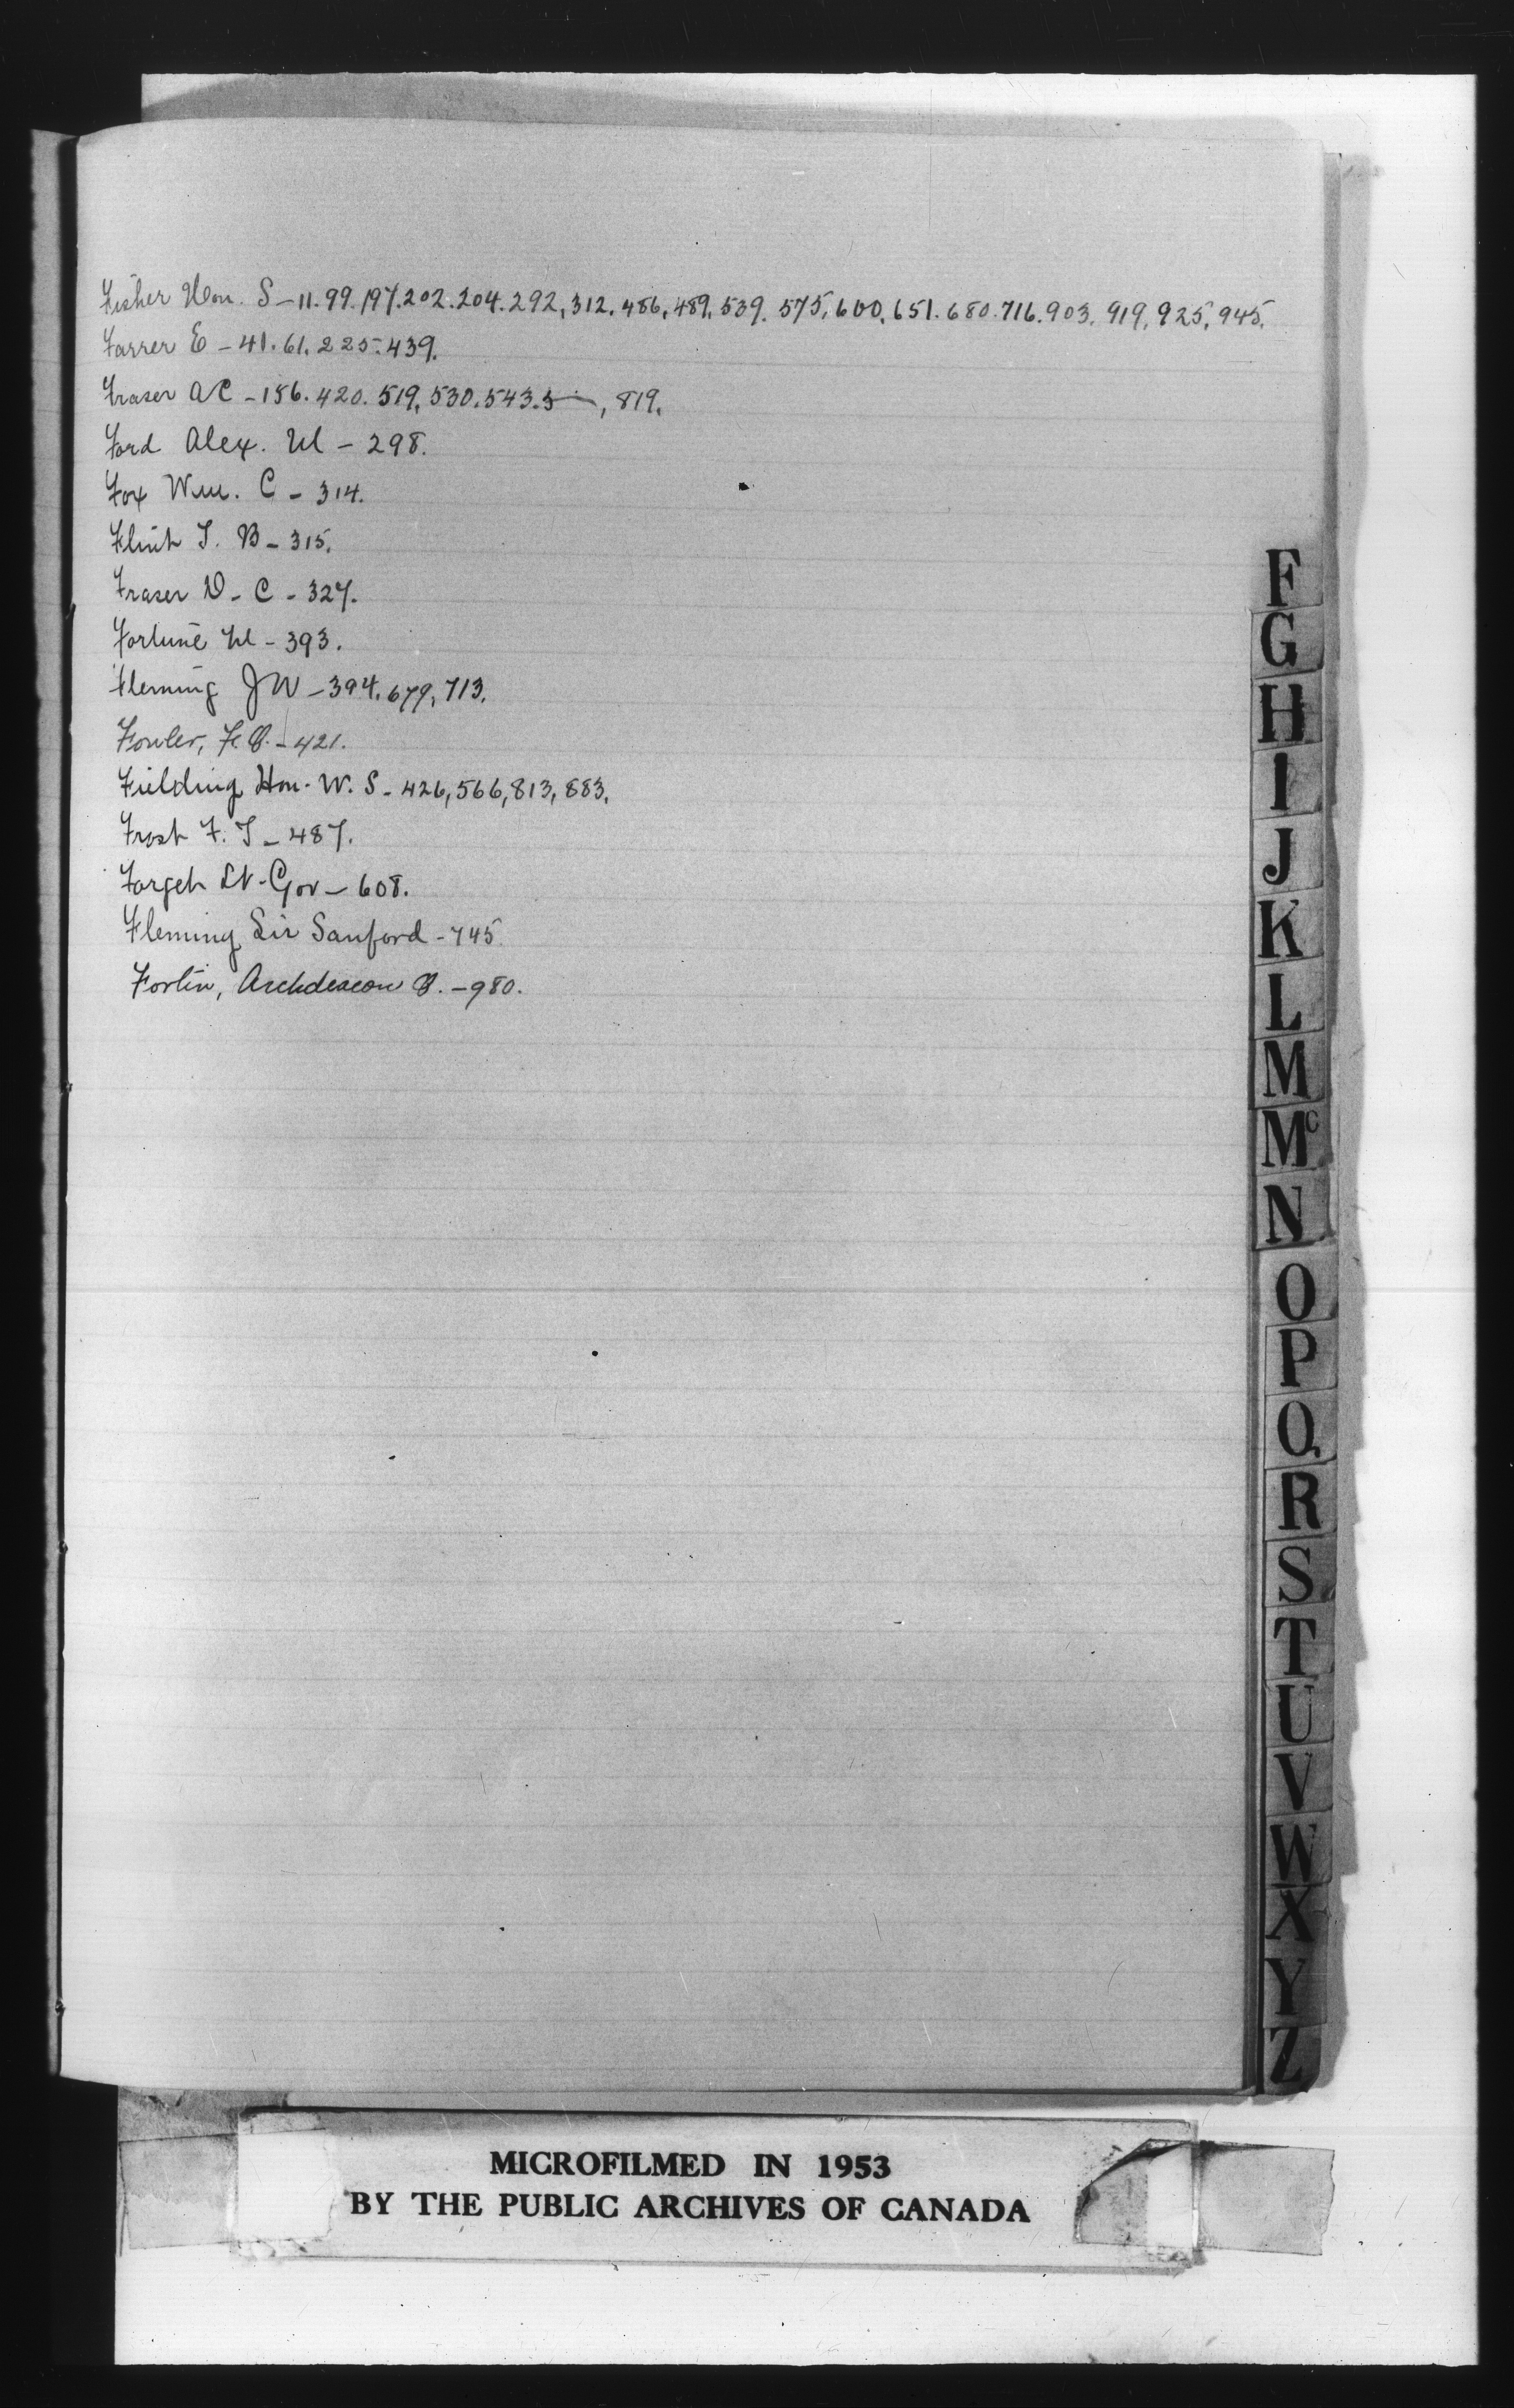 Fisher Hon. S - 11. 99. 197. 202. 204. 292, 312. 486, 489. 539. 575, 600. 651. 680. 716. 903. 919, 925, 945.
Farrer E - 41. 61. 225. 439.
Fraser A C - 156. 420. 519, 530. 543. 5, 819.
Ford Alex. M - 298.
Fox Wm. C - 314.
Flint T. B - 315.
Fraser D - C - 327.
Fortune M - 393.
Fleming J W - 394. 679, 713.
Fowler, F. B. - 421.
Fielding Hon. W. S. - 426, 566, 813, 883.
Frost F. T - 487.
Forget Lt - Gov - 608.
Fleming Sir Sanford - 745
Fortin, Archdeacon O. - 980.
F
G
H
I
J
K
L
M
Mc
N
O
P
Q
R
S
T
U
V
W
X
Y
Z
MICROFILMED IN 1953
BY THE PUBLIC ARCHIVES OF CANADA